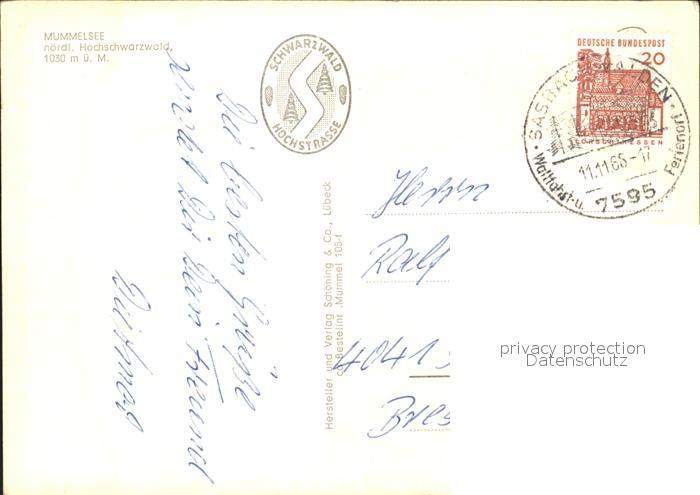 MUMMELSEE
nördl. Hochschwarzwald,
1030 m ü. M.
SCHWARZWALD
HOCHSTRASSE
Die besten Grüße
sendet Dir Dein Freund
Hersteller und Verlag Schöning & Co., Lübeck
Bestellnr. Mummel 105-f
DEUTSCHE BUNDESPOST
20
LORSCH HESSEN
SASBACHWALDEN
11.11.66-17
7595
Wallfahrt- u. Ferienort
Herrn
Ralf
4041
privacy protection
Datenschutz